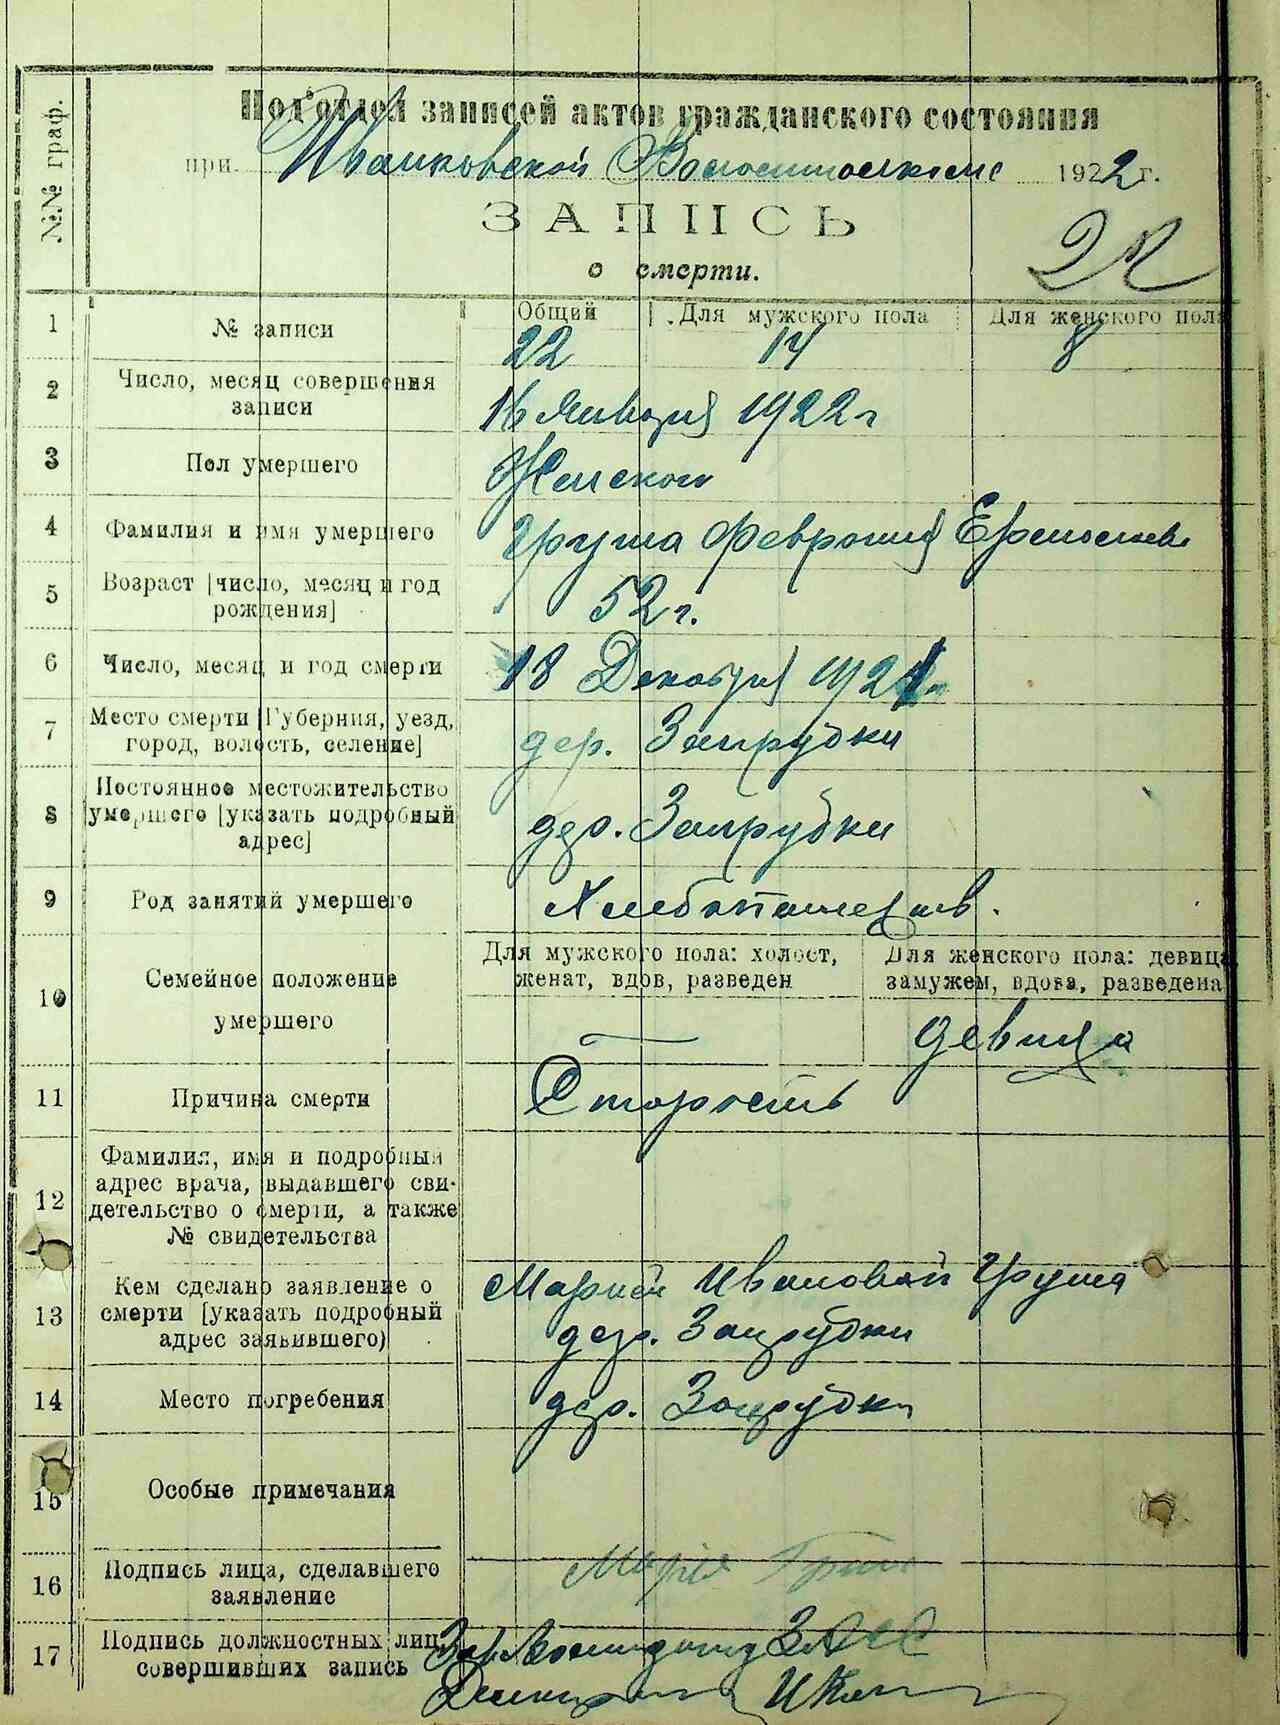 №№ граф.
Под'отдел записей актов гражданского состояния
при Иванковской Волостном 1922 г.
ЗАПИСЬ
о смерти.
22
1 № записи Общий Для мужского пола Для женского пола
22 14 8
2 Число, месяц совершения
записи
16 Января 1922 г
3 Пол умершего Женской
4 Фамилия и имя умершего Груша Феврония
5 Возраст [число, месяц и год
рождения]
52 г.
6 Число, месяц и год смерти 18 Декабря 1921
7 Место смерти [Губерния, уезд,
город, волость, селение]
дер. Запрудки
8 Постоянное местожительство
умершего [указать подробный
адрес]
дер. Запрудки
9 Род занятий умершего
10 Семейное положение
умершего
Для мужского пола: холост,
женат, вдов, разведен
Для женского пола: девица
замужем, вдова, разведена
— девица
11 Причина смерти Старость
12 Фамилия, имя и подробный
адрес врача, выдавшего сви-
детельство о смерти, а также
№ свидетельства
13 Кем сделано заявление о
смерти [указать подробный
адрес заявившего)
Марией Ивановой Груша
дер. Запрудки
14 Место погребения дер. Запрудки
15 Особые примечания
16 Подпись лица, сделавшего
заявление
Мария
17 Подпись должностных лиц,
совершивших запись
Зав. ЗАГС